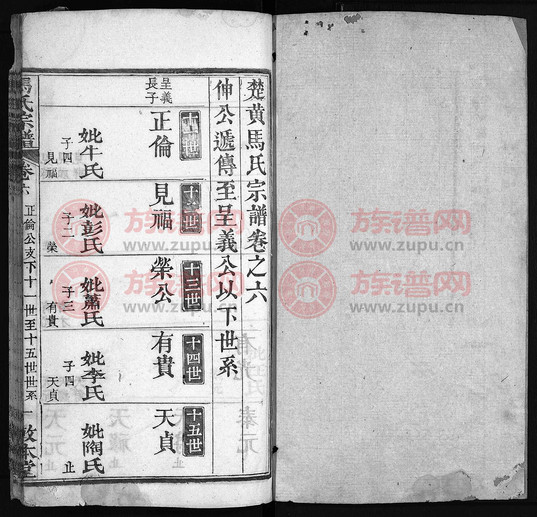 楚黃馬氏宗譜卷之六
伸公遞傳至呈義公以下世系
十一世
正倫
呈義長子
妣牛氏
子四
見福
十二世
見福
妣彭氏
子二
榮
十三世
榮公
妣蕭氏
子三
有貴
十四世
有貴
妣李氏
子四
天貞
十五世
天貞
妣閻氏
止
馬氏宗譜
卷六
正倫公支下十一世至十五世世系
敦本堂
族谱网
www.zupu.cn
族谱网
www.zupu.cn
族谱网
www.zupu.cn
族谱网
www.zupu.cn